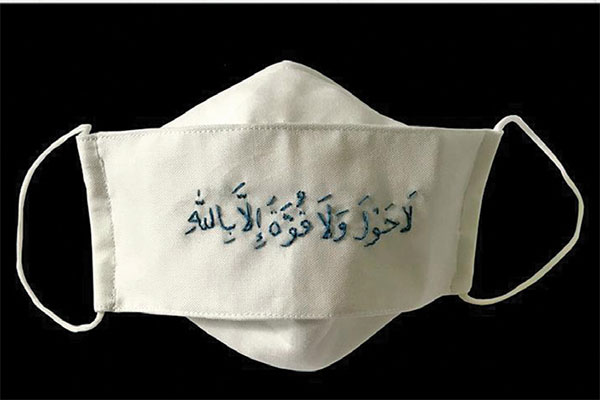 لَا حَوْلَ وَلَا قُوَّةَ إِلَّا بِاللَّهِ